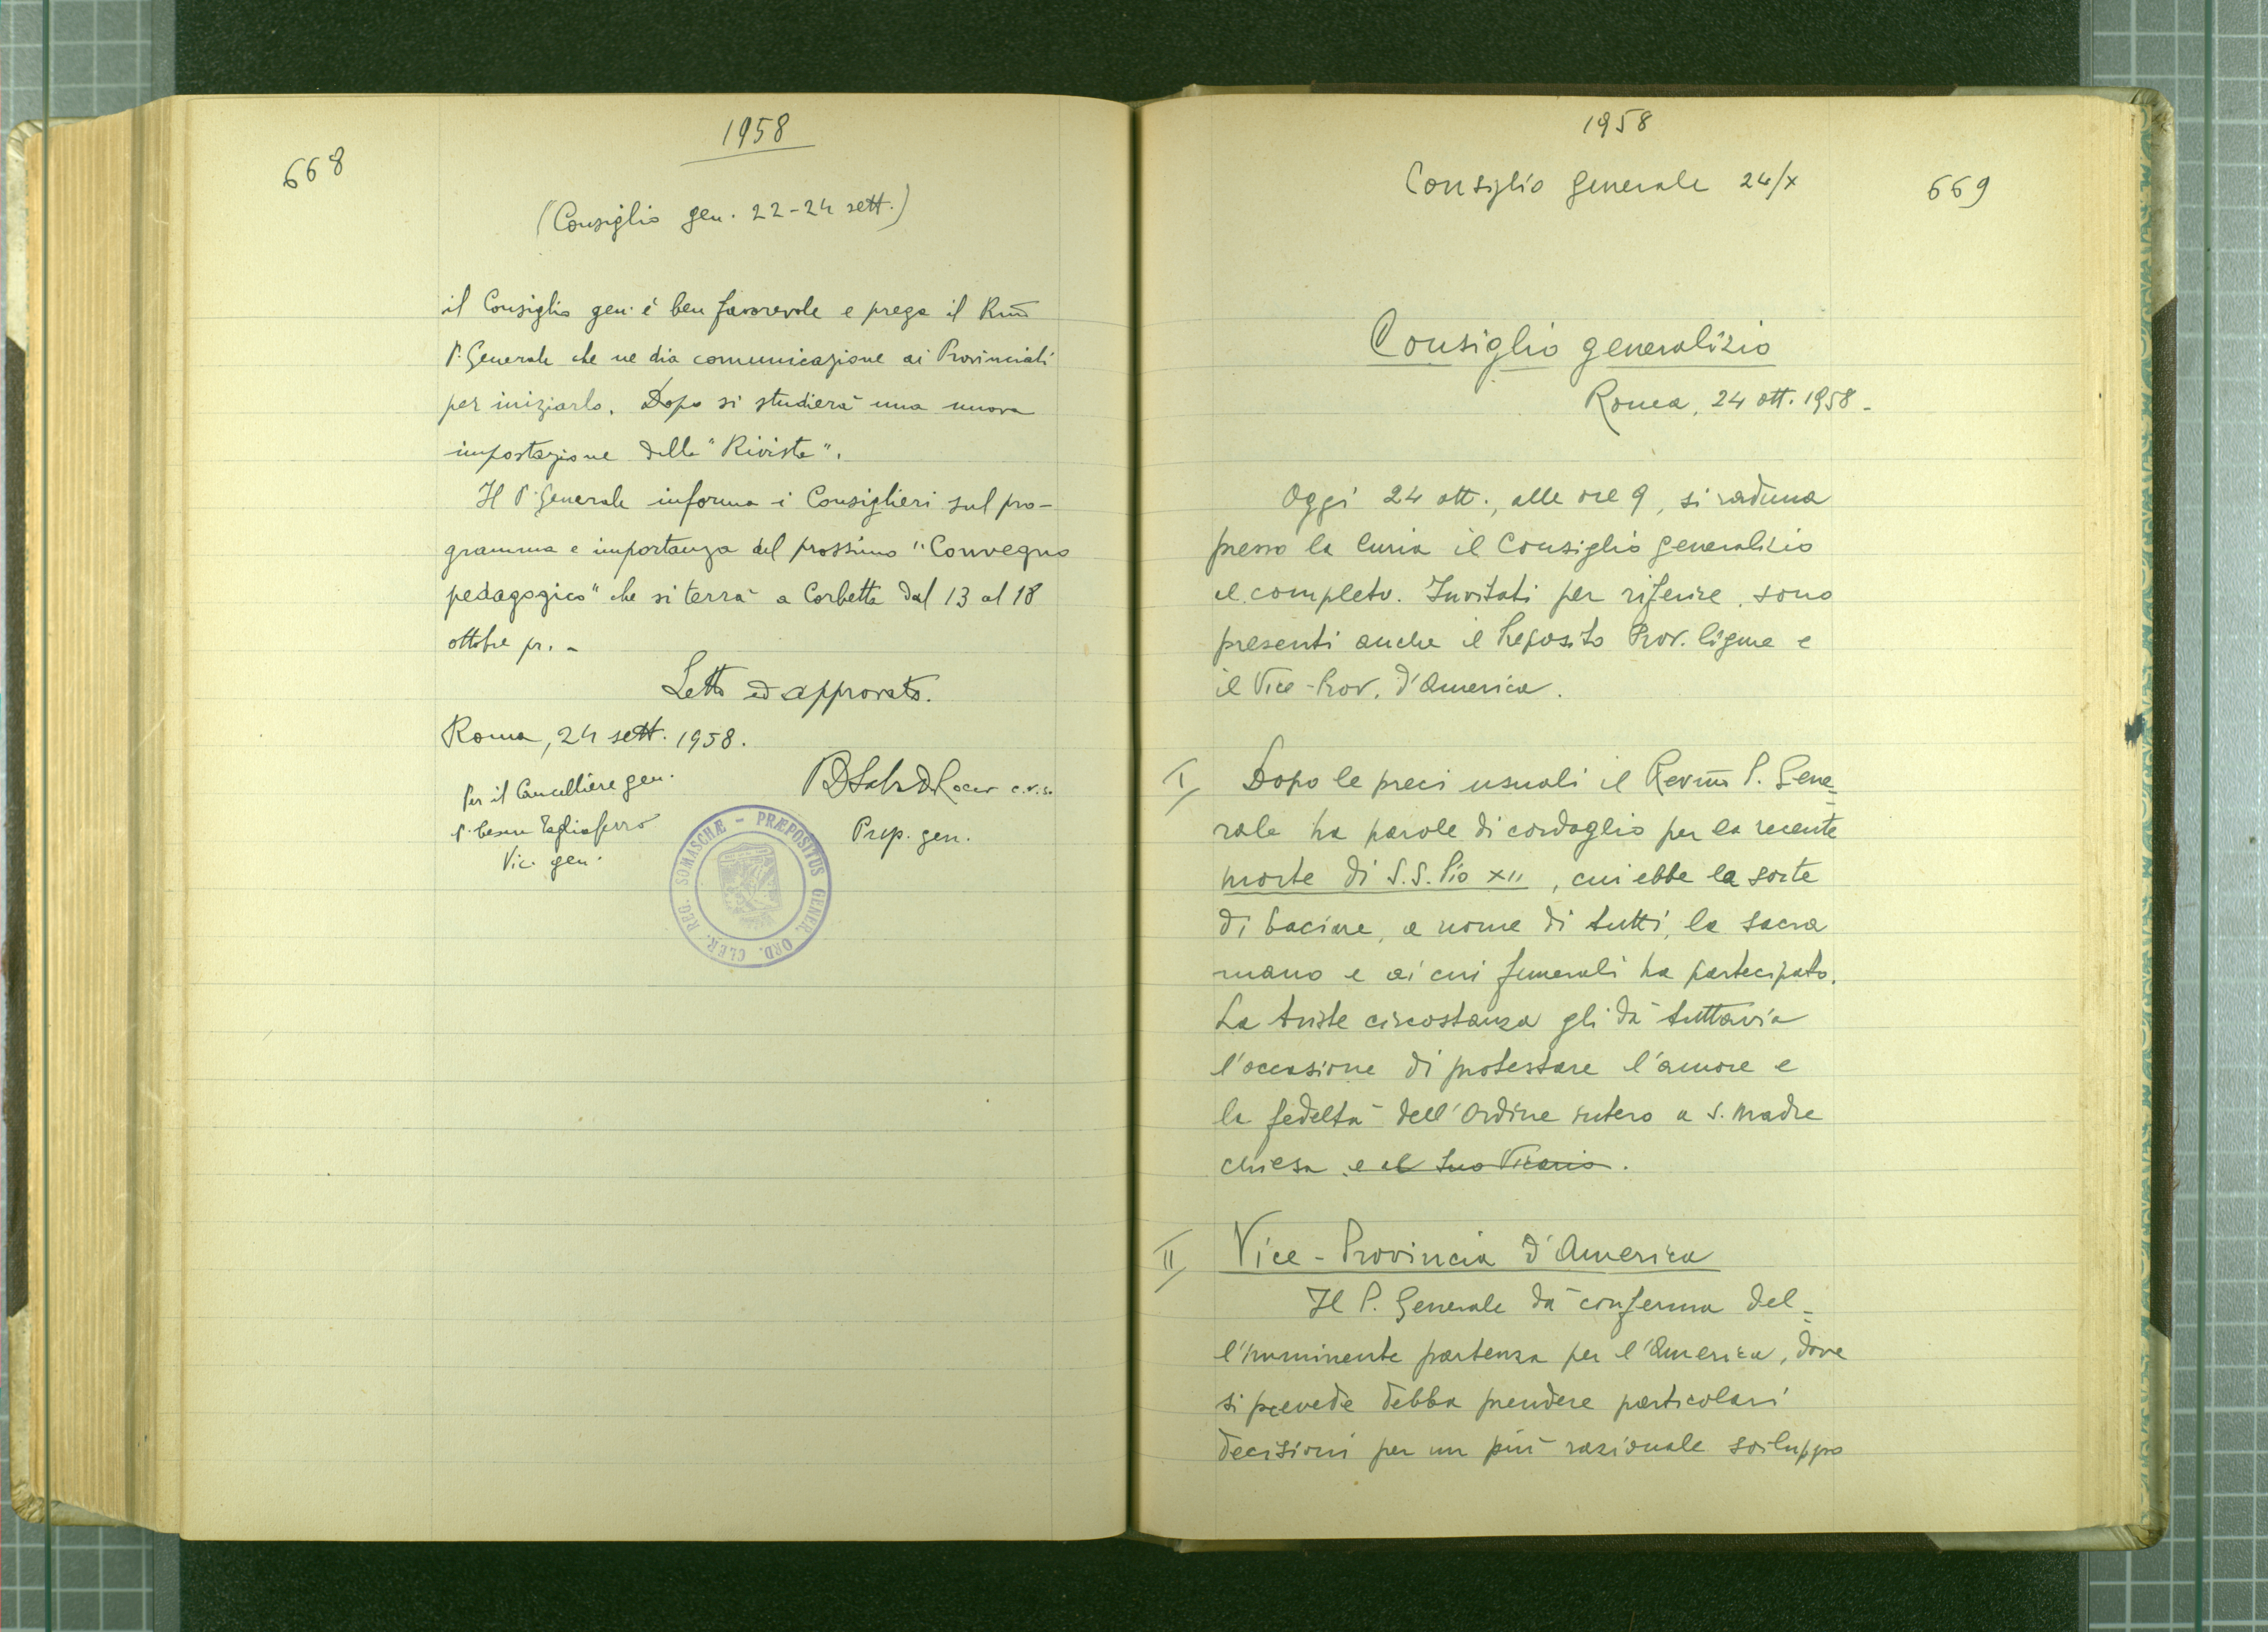 668
1958
(Consiglio gen. 22-24 sett.)
il Consiglio gen. è ben favorevole e prega il Rm̃o
P. Generale che ne dia comunicazione ai Provinciali
per iniziarlo. Dopo si studierà una nuova
impostazione della "Rivista".
Il P. Generale informa i Consiglieri sul pro-
gramma e importanza del prossimo "Convegno
pedagogico" che si terrà a Corbetta dal 13 al 18
ottobre pr. -
Letto ed approvato.
Roma, 24 sett. 1958.
Per il Cancelliere gen.
P. Cesare Tagliaferro
Vic. gen.
c.r.s.
Prep. gen.
PRÆPOSITUS GENER. ORD. CLER. REG. SOMASCHÆ -
1958
Consiglio generale 24/X
669
Consiglio generalizio
Roma, 24 ott. 1958 -
Oggi 24 ott., alle ore 9, si raduna
presso la Curia il Consiglio generalizio
al completo. Invitati per riferire, sono
presenti anche il Preposito Prov. ligure e
il Vice-Prov. d'America.
I/ Dopo le preci usuali il Revm̃o P. Gene=
rale ha parole di cordoglio per la recente
morte di S.S. Pio XII, cui ebbe la sorte
di baciare, a nome di tutti, la sacra
mano e ai cui funerali ha partecipato.
La triste circostanza gli dà tuttavia
l'occasione di protestare l'amore e
la fedeltà dell'Ordine intero a S. Madre
Chiesa e al Suo Vicario.
II/ Vice-Provincia d'America
Il P. Generale dà conferma del=
l'imminente partenza per l'America, dove
si prevede debba prendere particolari
decisioni per un più razionale sviluppo